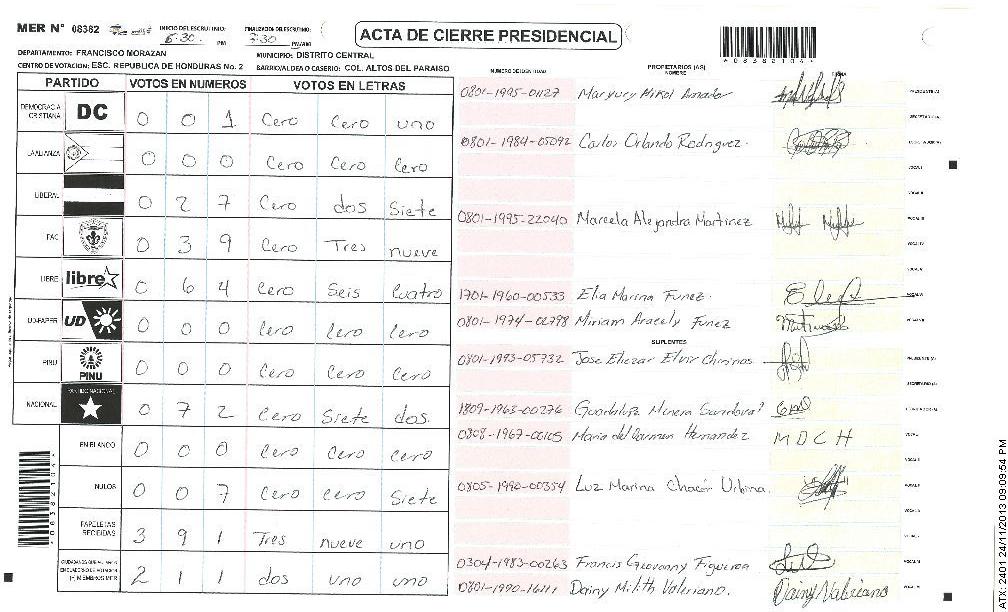 MER N° 08382 INICIO DEL ESCRUTINIO: 6:30 PM FINALIZACION DEL ESCRUTINIO: 7:30 PM/AM
ACTA DE CIERRE PRESIDENCIAL
*08382104*
DEPARTAMENTO: FRANCISCO MORAZAN MUNICIPIO: DISTRITO CENTRAL
CENTRO DE VOTACION: ESC. REPUBLICA DE HONDURAS No. 2 BARRIO/ALDEA O CASERIO: COL. ALTOS DEL PARAISO
PARTIDO VOTOS EN NUMEROS VOTOS EN LETRAS
DEMOCRACIA CRISTIANA DC 0 0 1 Cero Cero uno
LA ALIANZA 0 0 0 Cero Cero Cero
LIBERAL 0 2 7 Cero dos Siete
FAC 0 3 9 Cero Tres nueve
LIBRE libre 0 6 4 Cero Seis Cuatro
UD-FAPER UD 0 0 0 Cero Cero Cero
PINU PINU 0 0 0 Cero Cero Cero
NACIONAL PARTIDO NACIONAL 0 7 2 Cero Siete dos
EN BLANCO 0 0 0 Cero Cero Cero
NULOS 0 0 7 Cero cero Siete
PAPELETAS RECIBIDAS 3 9 1 Tres nueve uno
2 1 1 dos uno uno
NUMERO DE IDENTIDAD PROPIETARIOS (AS) NOMBRE FIRMA
0801-1995-01127 Maryury Mikol Amador PRESIDENTE (A)
SECRETARIO (A)
0801-1984-05092 Carlos Orlando Rodriguez. ESCRUTADOR (A)
VOCAL I
VOCAL II
0801-1995-22040 Marcela Alejandra Martinez VOCAL III
VOCAL IV
VOCAL V
1701-1960-00533 Elia Marina Funez. VOCAL VI
0801-1974-02798 Miriam Aracely Funez
SUPLENTES
0801-1993-05732 Jose Eliezar Elvir Chirinos
SECRETARIO (A)
1809-1963-00276 Guadalupe
0808-1967-00105 Maria del Carmen Hernandez MDCH
0805-1990-00354 Luz Marina Chacón Urbina.
0304-1983-00263 Francis Geovanny Figueroa
0801-1990-16111 Dainy Milith Valeriano. Dainy Valeriano
*08382104*
ATX 2401 24/11/2013 09:09:54 PM